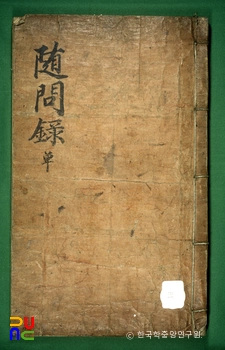 随問録
単
© 한국학중앙연구원